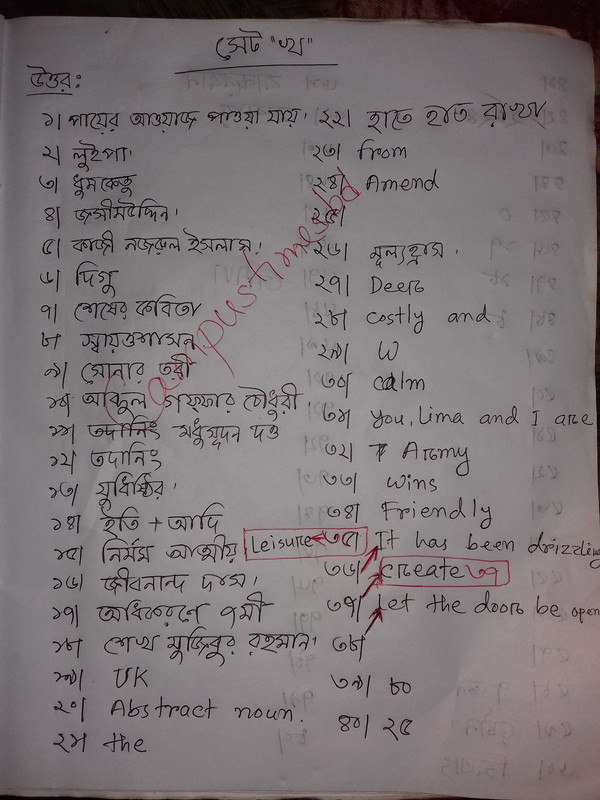 সেট "খ"
উত্তর:
১। পায়ের আওয়াজ পাওয়া যায়।
২। লুইপা।
৩। ধুমকেতু
৪। জসীমউদ্দিন।
৫। কাজী নজরুল ইসলাম।
৬। দিগু
৭। শেষের কবিতা
৮। স্বায়ত্তশাসন
৯। সোনার তরী
১০। আব্দুল গফ্ফার চৌধুরী
১১। তদানিং মধুসূদন দত্ত
১২। তদানিং
১৩। যুধিষ্ঠির।
১৪। ইতি + আদি
১৫। নির্মম আত্মীয়
১৬। জীবনান্দ দাস।
১৭। অধিকরণে ৭মী
১৮। শেখ মুজিবুর রহমান।
১৯। UK
২০। Abstract noun.
২১। the
২২। হাতে হাত রাখা
২৩। from
২৪। Amend
২৫।
২৬। মূল্যহ্রাস।
২৭। Deer
২৮। costly and
২৯। W
৩০। calm
৩১। you, Lima and I are
৩২। Army
৩৩। wins
৩৪। Friendly
Leisure ৩৫। It has been drizzling
৩৬। create ৩৭
৩৭। Let the door be open
৩৮।
৩৯। ৮০
৪০। ২৫
Campustimesbd